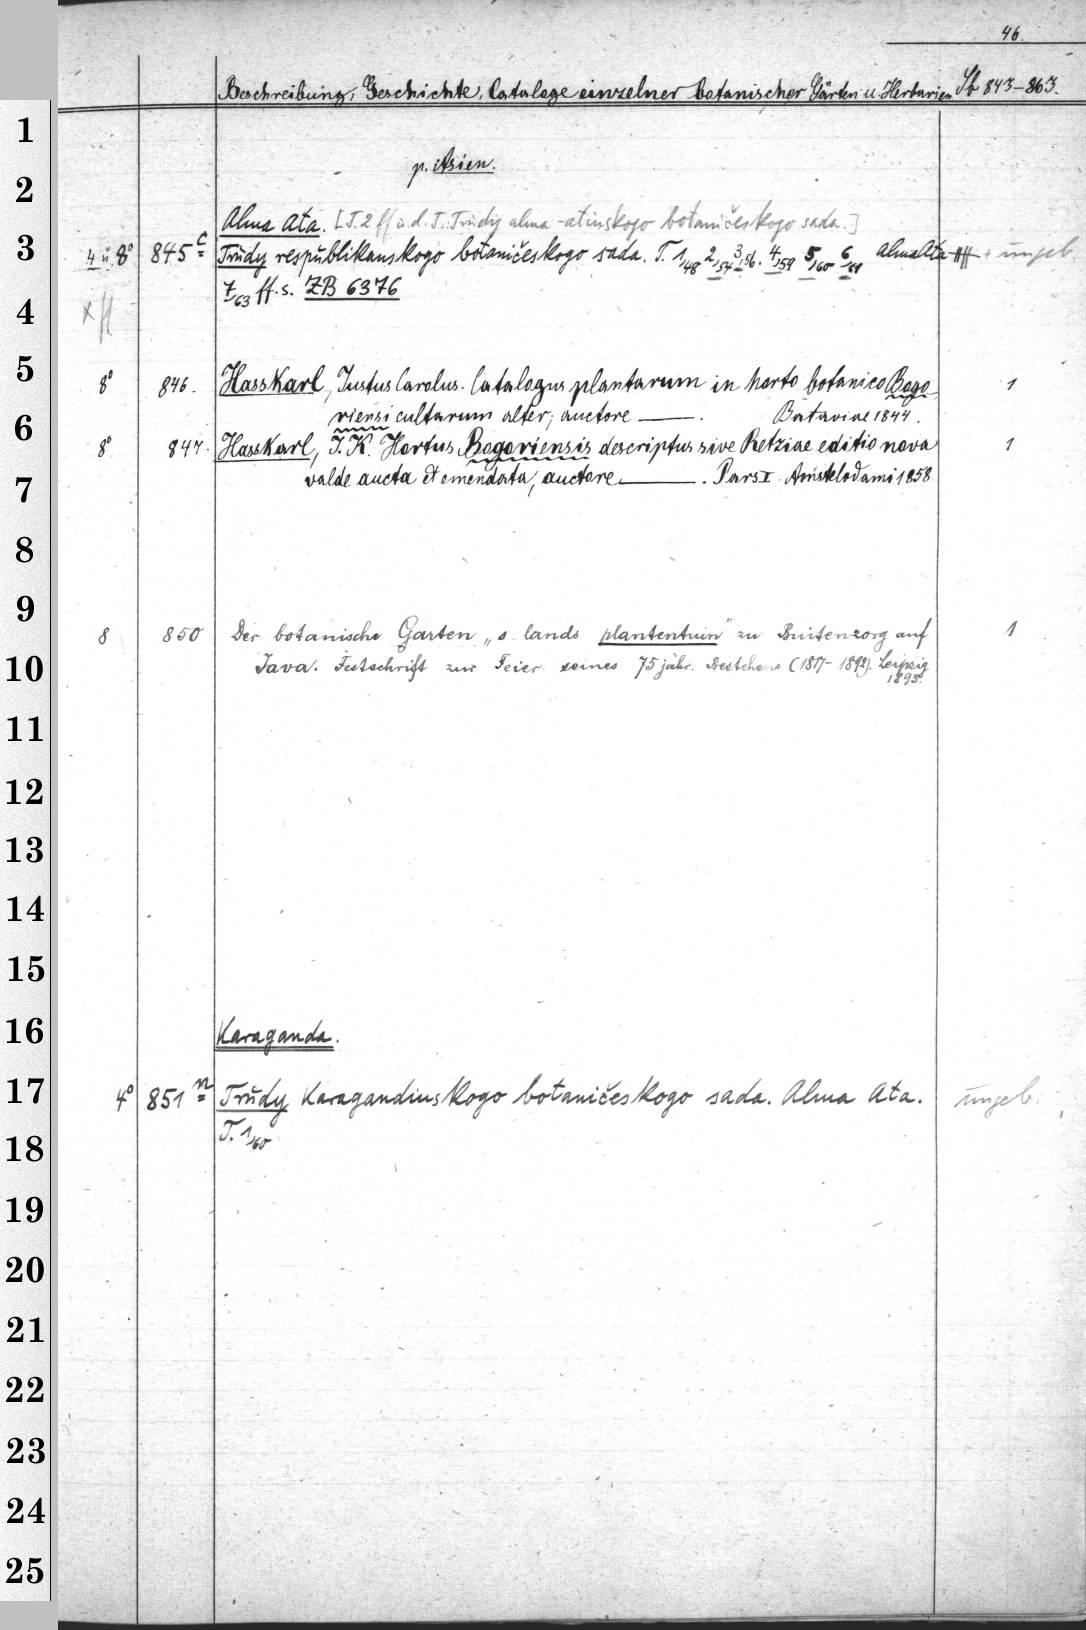 46.
Beschreibung, Geschichte, Cataloge einzelner botanischer Gärten u. Herbarien Sb 843-863.
p. Asien.
Alma Ata. [T. 2 ff u. d. T.: Trudy alma-atinskogo botaničeskogo sada.]
4 u. 8° 845 c Trudy respublikanskogo botaničeskogo sada. T. 1/48 2/54 3/56. 4/59 5/60 6/61 Alma Ata + ungeb
7/63 ff. s. ZB 6376
x ff
8° 846. Hasskarl, Justus Carolus. Catalogus plantarum in horto botanico Bogo- 1
riensi cultarum alter; auctore ——. Bataviae 1844.
8° 847. Hasskarl, J. K. Hortus Bogoriensis descriptus sive Retziae editio nova 1
valde aucta et emendata, auctore ——. Pars I. Amstelodami 1858
8 850 Der botanische Garten „s lands plantentuin" zu Buitenzorg auf 1
Java. Festschrift zur Feier seines 75 jähr. Bestehens (1817-1892). Leipzig
1893.
Karaganda.
4° 851 n Trudy Karagandinskogo botaničeskogo sada. Alma Ata. ungeb.
T. 1/60
1
2
3
4
5
6
7
8
9
10
11
12
13
14
15
16
17
18
19
20
21
22
23
24
25